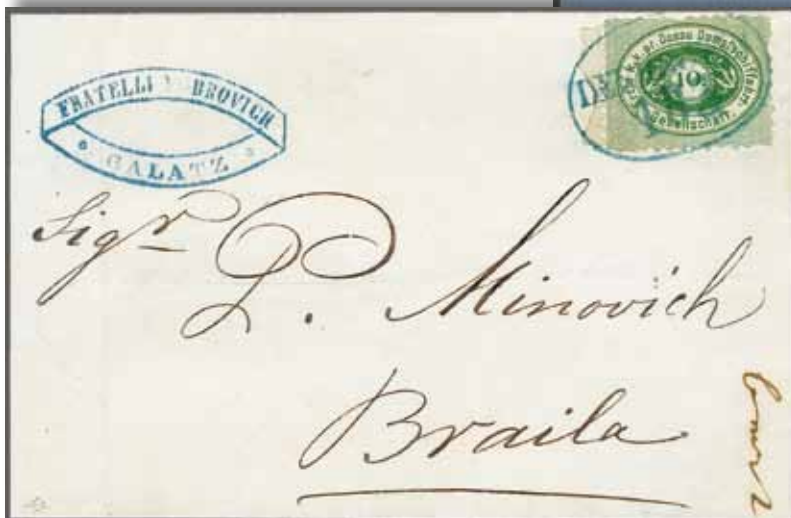 FRATELLI BROVICH
GALATZ
Erste k.k. pr. Donau Dampfschiffahrt
10
Gesellschaft.
Sigr
P. Minovich
Braila